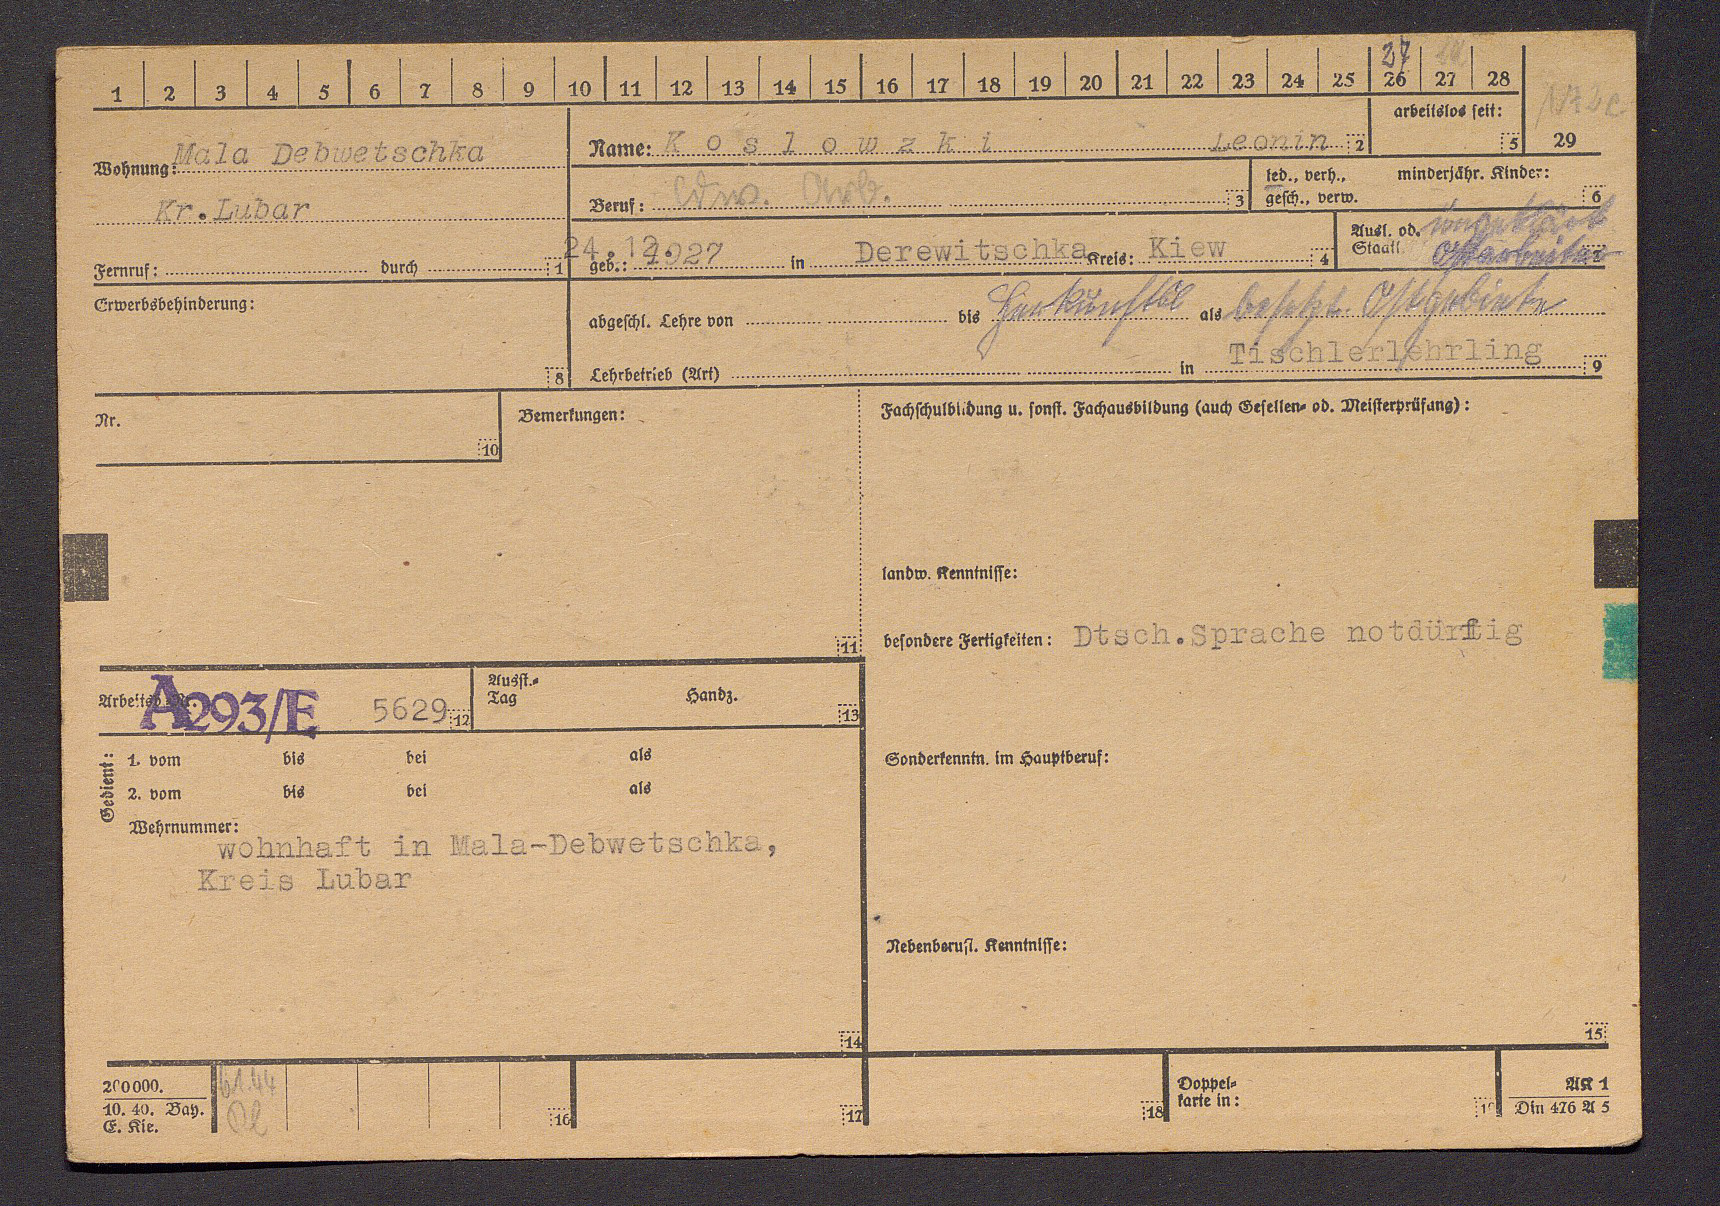 1 2 3 4 5 6 7 8 9 10 11 12 13 14 15 16 17 18 19 20 21 22 23 24 25 26 27 28
27
arbeitslos seit:
5 29
Wohnung: Mala Debwetschka
Kr. Lubar
Fernruf: durch 1
Name: Koslowzki Leonin 2
Beruf: ldw. Arb. 3
led., verh., gesch., verw.
minderjähr. Kinder: 6
geb.: 24.12.1927 in Derewitschka Kreis: Kiew 4
Ausl. od. Staatl. ungeklärt
Ostarbeiter
Erwerbsbehinderung:
8
abgeschl. Lehre von bis Herkunftsl als besetzt. Ostgebiete
Lehrbetrieb (Art) in Tischlerlehrling 9
Nr.
10
Bemerkungen:
11
Fachschulbildung u. sonst. Fachausbildung (auch Gesellen- od. Meisterprüfung):
landw. Kenntnisse:
besondere Fertigkeiten: Dtsch.Sprache notdürftig
Arbeitsb. Nr. A293/E 5629 12
Ausst.-Tag Handz. 13
Gedient:
1. vom bis bei als
2. vom bis bei als
Wehrnummer:
wohnhaft in Mala-Debwetschka,
Kreis Lubar
14
Sonderkenntn. im Hauptberuf:
Nebenberufl. Kenntnisse:
15
200000.
10. 40. Bay.
E. Kie.
16 17 18
Doppel-
karte in:
19
AK 1
Din 476 A 5